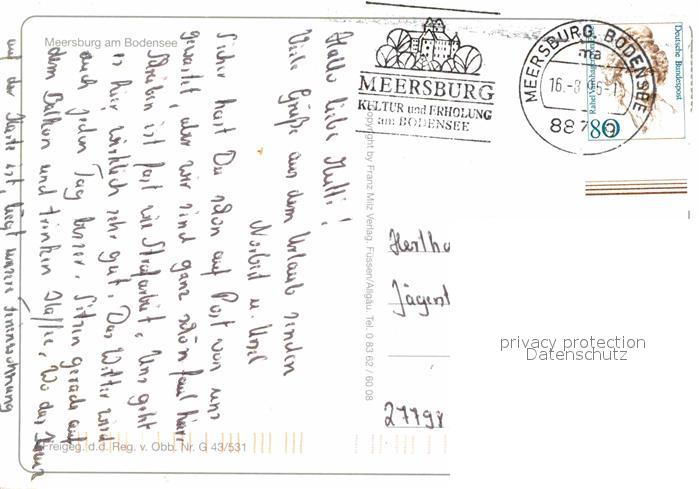 Meersburg am Bodensee
Hallo liebe Mutti!
Viele Grüße aus dem Urlaub senden
Norbert u. Ursel
Sicher hast Du schon auf Post von uns
gewartet, aber wir sind ganz schön faul hier.
Schreiben ist fast wie Strafarbeit, Uns geht
es hier wirklich sehr gut. Das Wetter wird
auch jeden Tag besser. Sitzen gerade auf
dem Balkon und trinken Kaffee. Wo das
auf der Karte ist, liegt unsere Ferienwohnung
Freigeg. d.d. Reg. v. Obb. Nr. G 43/531
Copyright by Franz Milz Verlag, Füssen/Allgäu, Tel. 0 83 62 / 60 08
MEERSBURG
KULTUR und ERHOLUNG
am BODENSEE
MEERSBURG, BODENSEE
ma
16.-8.
887 9
Deutsche Bundespost
80
Hertha
Jäger
27798
privacy protection
Datenschutz